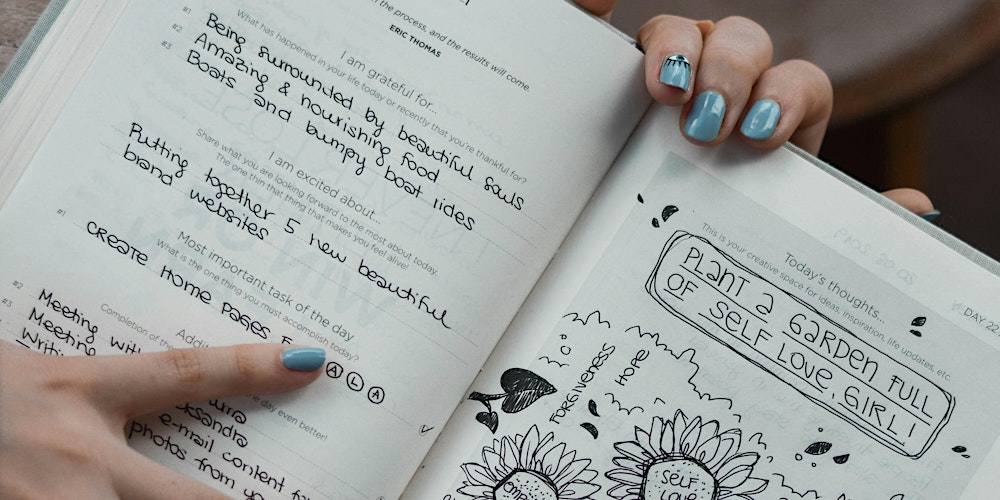 the process, and the results will come.
ERIC THOMAS
I am grateful for...
What has happened in your life today or recently that you're thankful for?
#1 Being surrounded by beautiful souls
#2 Amazing & nourishing food
#3 Boats and bumpy boat rides
I am excited about...
Share what you are looking forward to the most about today.
The one thin that thing that makes you feel alive!
Putting together 5 new beautiful
brand websites
Most important task of the day
What is the one thing you must accomplish today?
#1 CREATE HOME PAGES
A L A
Completion of the
#2 Meeting with
#3 Meeting
Writing
e day even better!
e-mail content for
photos from
DAY 22
Today's thoughts...
This is your creative space for ideas, inspiration, life updates, etc.
PLANT A GARDEN FULL
OF SELF LOVE, GIRL!
FORGIVENESS
HOPE
SELF
LOVE